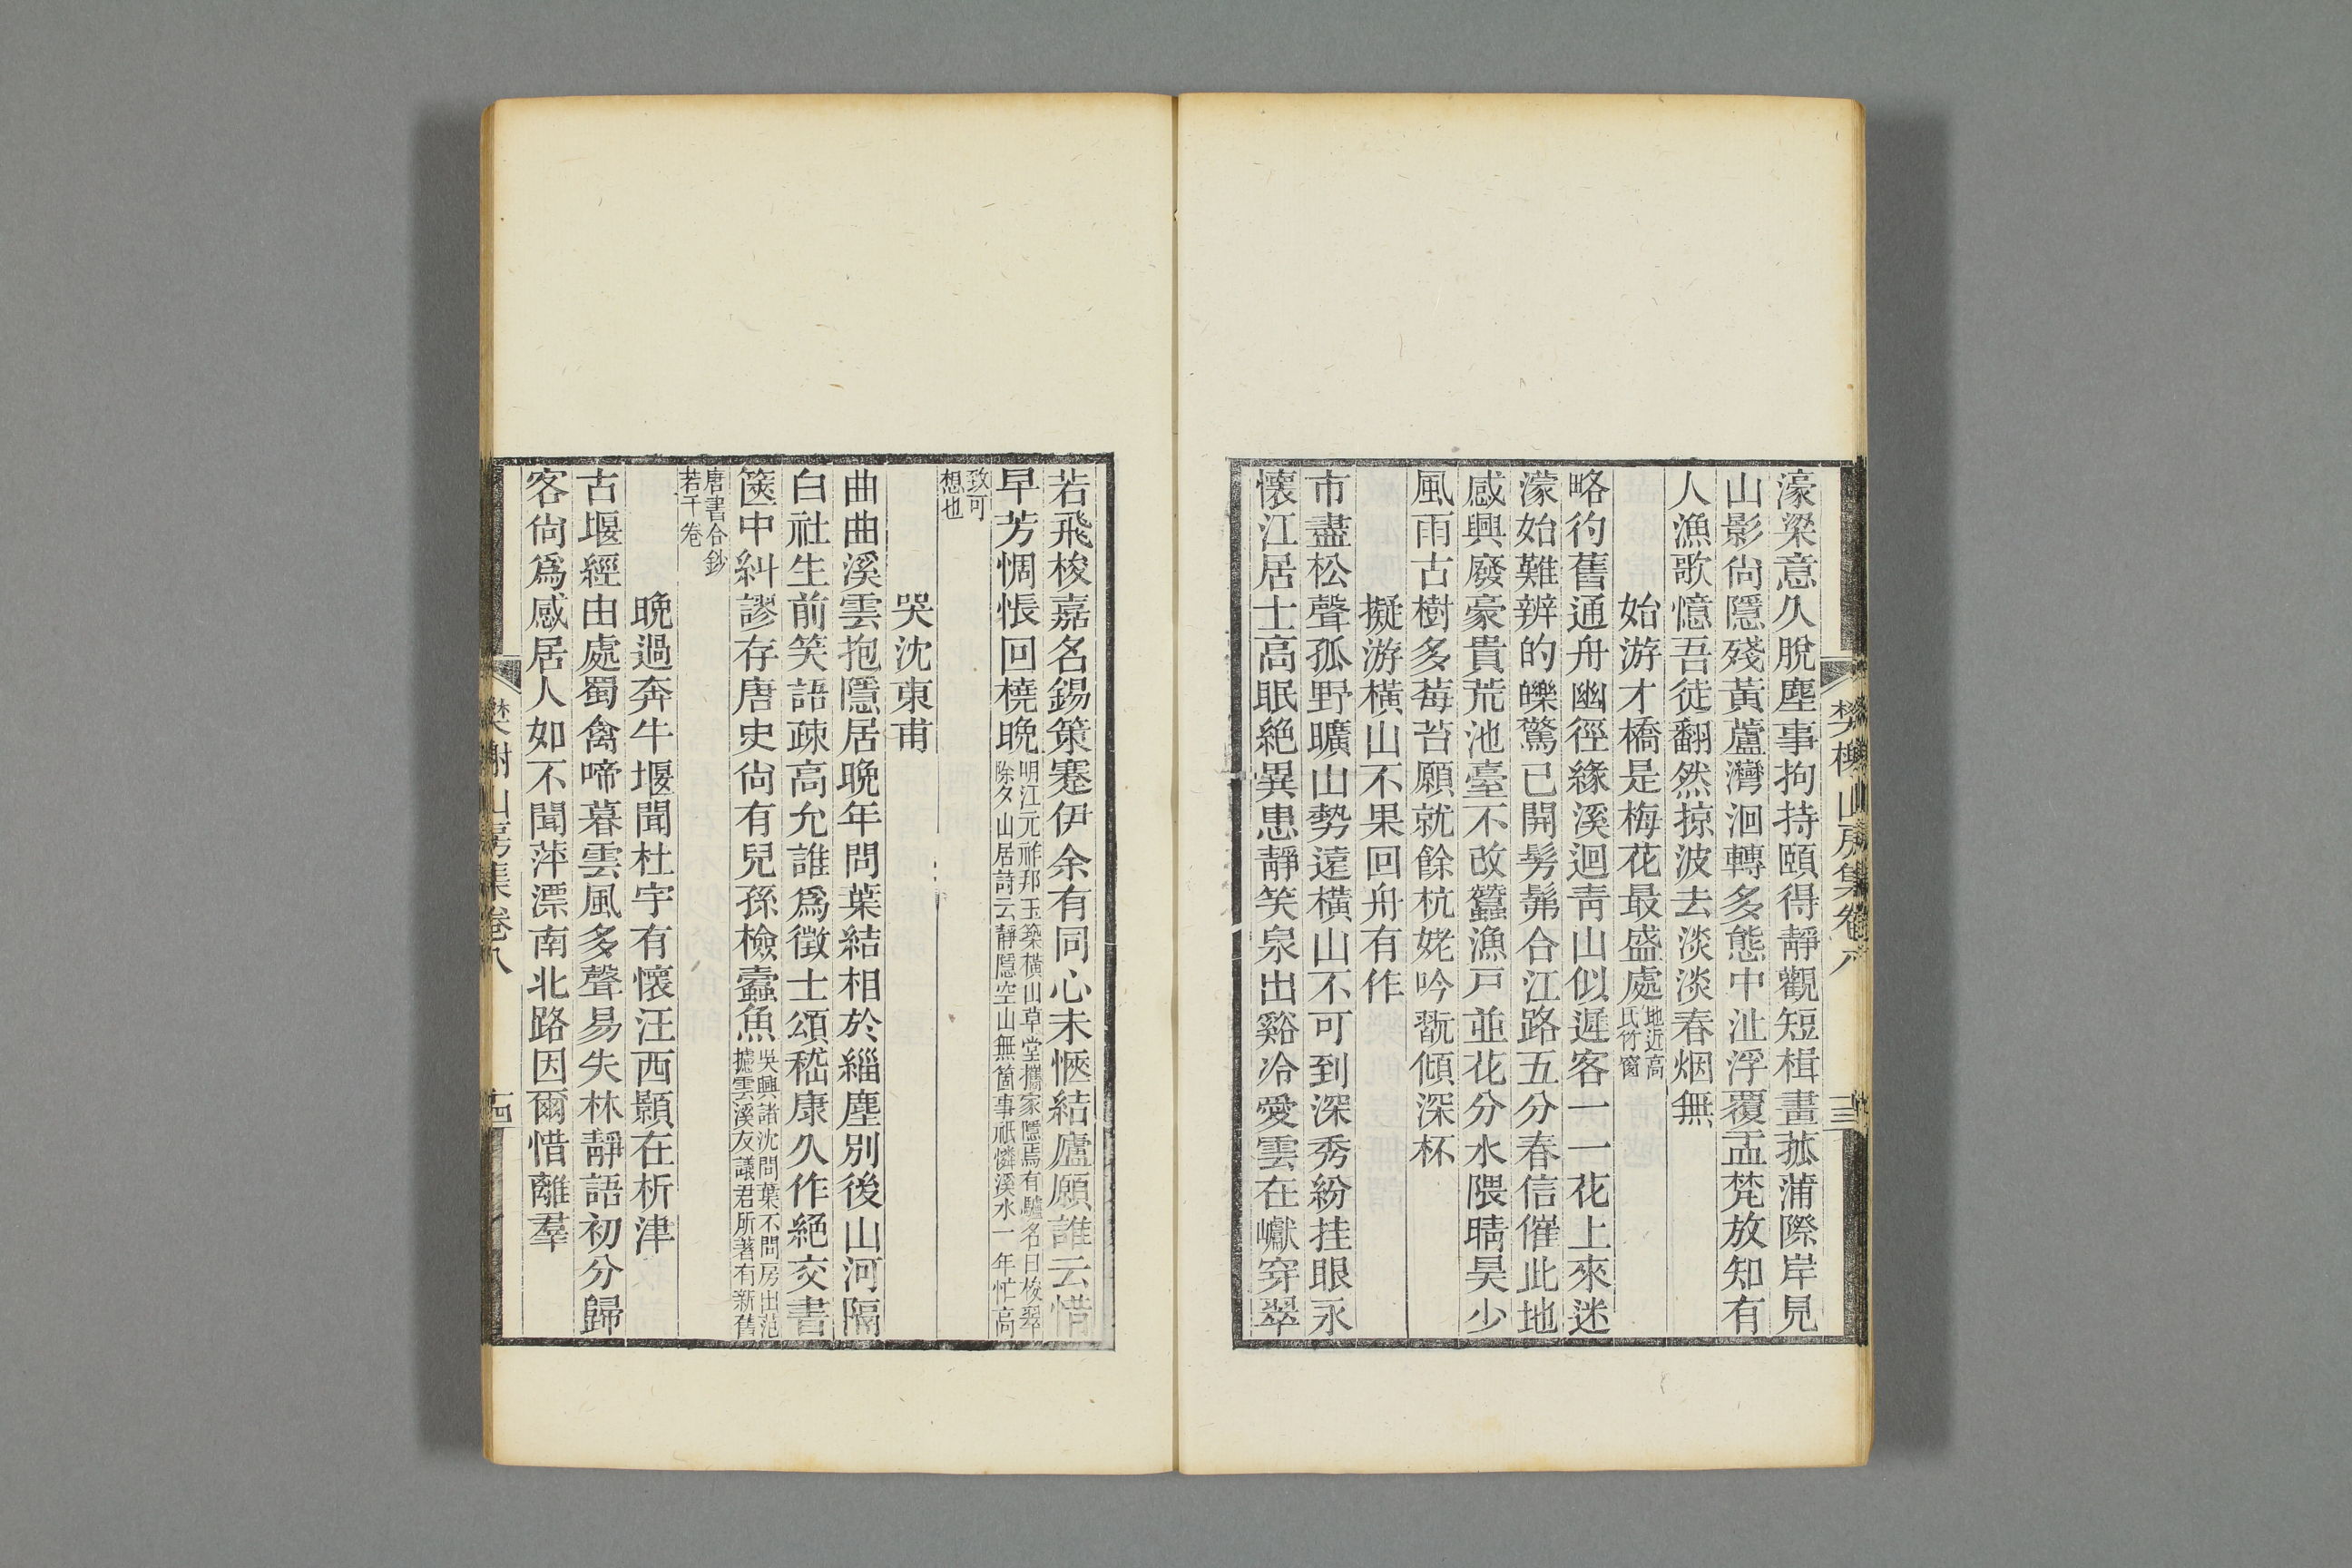 濠梁意久脫塵事拘持頤得靜觀短楫畫菰蒲際岸見
山影尙隱殘黃蘆灣洄轉多態中沚浮覆盂梵放知有
人漁歌憶吾徒翻然掠波去淡淡春烟無
始游才橋是梅花最盛處地近高氏竹窗
略彴舊通舟幽徑緣溪迴靑山似遲客一一花上來迷
濛始難辨的皪驚已開髣髴合江路五分春信催此地
感興廢豪貴荒池臺不改蠶漁戸並花分水隈晴昊少
風雨古樹多莓苔願就餘杭姥吟翫傾深杯
擬游橫山不果回舟有作
市盡松聲孤野曠山勢遠橫山不可到深秀紛挂眼永
懷江居士高眠絶異患靜笑泉出谿冷愛雲在巘穿翠
樊榭山房集卷八
十三
若飛梭嘉名錫策蹇伊余有同心未愜結廬願誰云惜
早芳惆悵回橈晚明江元祚邦玉築橫山草堂攜家隱焉有驢名曰梭翠
除夕山居詩云靜隱空山無箇事祇憐溪水一年忙高
致可
想也
哭沈東甫
曲曲溪雲抱隱居晚年問葉結相於緇塵別後山河隔
白社生前笑語疎高允誰爲徵士頌嵇康久作絶交書
篋中糾謬存唐史尙有兒孫檢蠹魚吳興諸沈問葉不問房出范
攄雲溪友議君所著有新舊
唐書合鈔
若干卷
晚過奔牛堰聞杜宇有懷汪西顥在析津
古堰經由處蜀禽啼暮雲風多聲易失林靜語初分歸
客尙爲感居人如不聞萍漂南北路因爾惜離羣
樊榭山房集卷八
十四